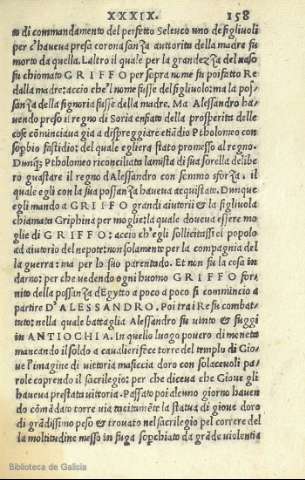 XXXIX. 158
to di commandamento del perfetto Seleuco uno de figliuoli
per c'haueua presa corona sanza auttorita della madre fu
morto da quella. Laltro il quale per la grandezza del naso
fu chiomato GRIFFO per sopra nome fu poi fatto Re
dalla madre: accio che'l nome fusse del figliuolo: ma la pos-
sanza della signoria fusse della madre. Ma Alessandro ha-
uendo preso il regno di Soria enfiato della prosperita delle
cose cominciaua gia a dispreggiare etiādio Ptholomeo con
sophio fastidio: del quale egli era stato promesso al regno.
Dunq; Ptholomeo riconciliata lamista di sua sorella delibe
ro guastare il regno d'Alessandro con sommo sforza, il
quale egli con la sua possanza haueua acquistato. Dunque
egli mando a GRIFO grandi aiutorii & la figliuola
chiamata Griphina per moglie: la quale doueua essere mo
glie di GRIFFO: accio ch'egli sollicitassi ei popolo
ad aiutorio del nepote: non solamente per la compagnia del
la guerra: ma per lo suo parentado. Et non fu la cosa in
darno: per che uedendo ogni huomo GRIFFO for-
nito della possanza d'Egytto a poco a poco si commincio a
partire D'ALESSANDRO. Poi trai Re fu combat-
tuto: nella quale battaglia Alessandro fu uinto & fuggi
in ANTIOCHIA. In quello luogo pouero di moneta
mancando il soldo a cauallieri fece torre del templo di Gio
ue l'imagine di uittoria massiccia doro con solaceuoli pa-
role coprendo il sacrilegio: per che diceua che Gioue gli
haueua prestata uittoria. Passato poi alcuno giorno hauen
do cōmādato torre uia tacitamēte la statua di gioue doro
di grādissimo peso & trouato nel sacrilegio pel correre del
la moltitudine messo in fuga sopchiato da grāde uiolentia
Biblioteca de Galicia